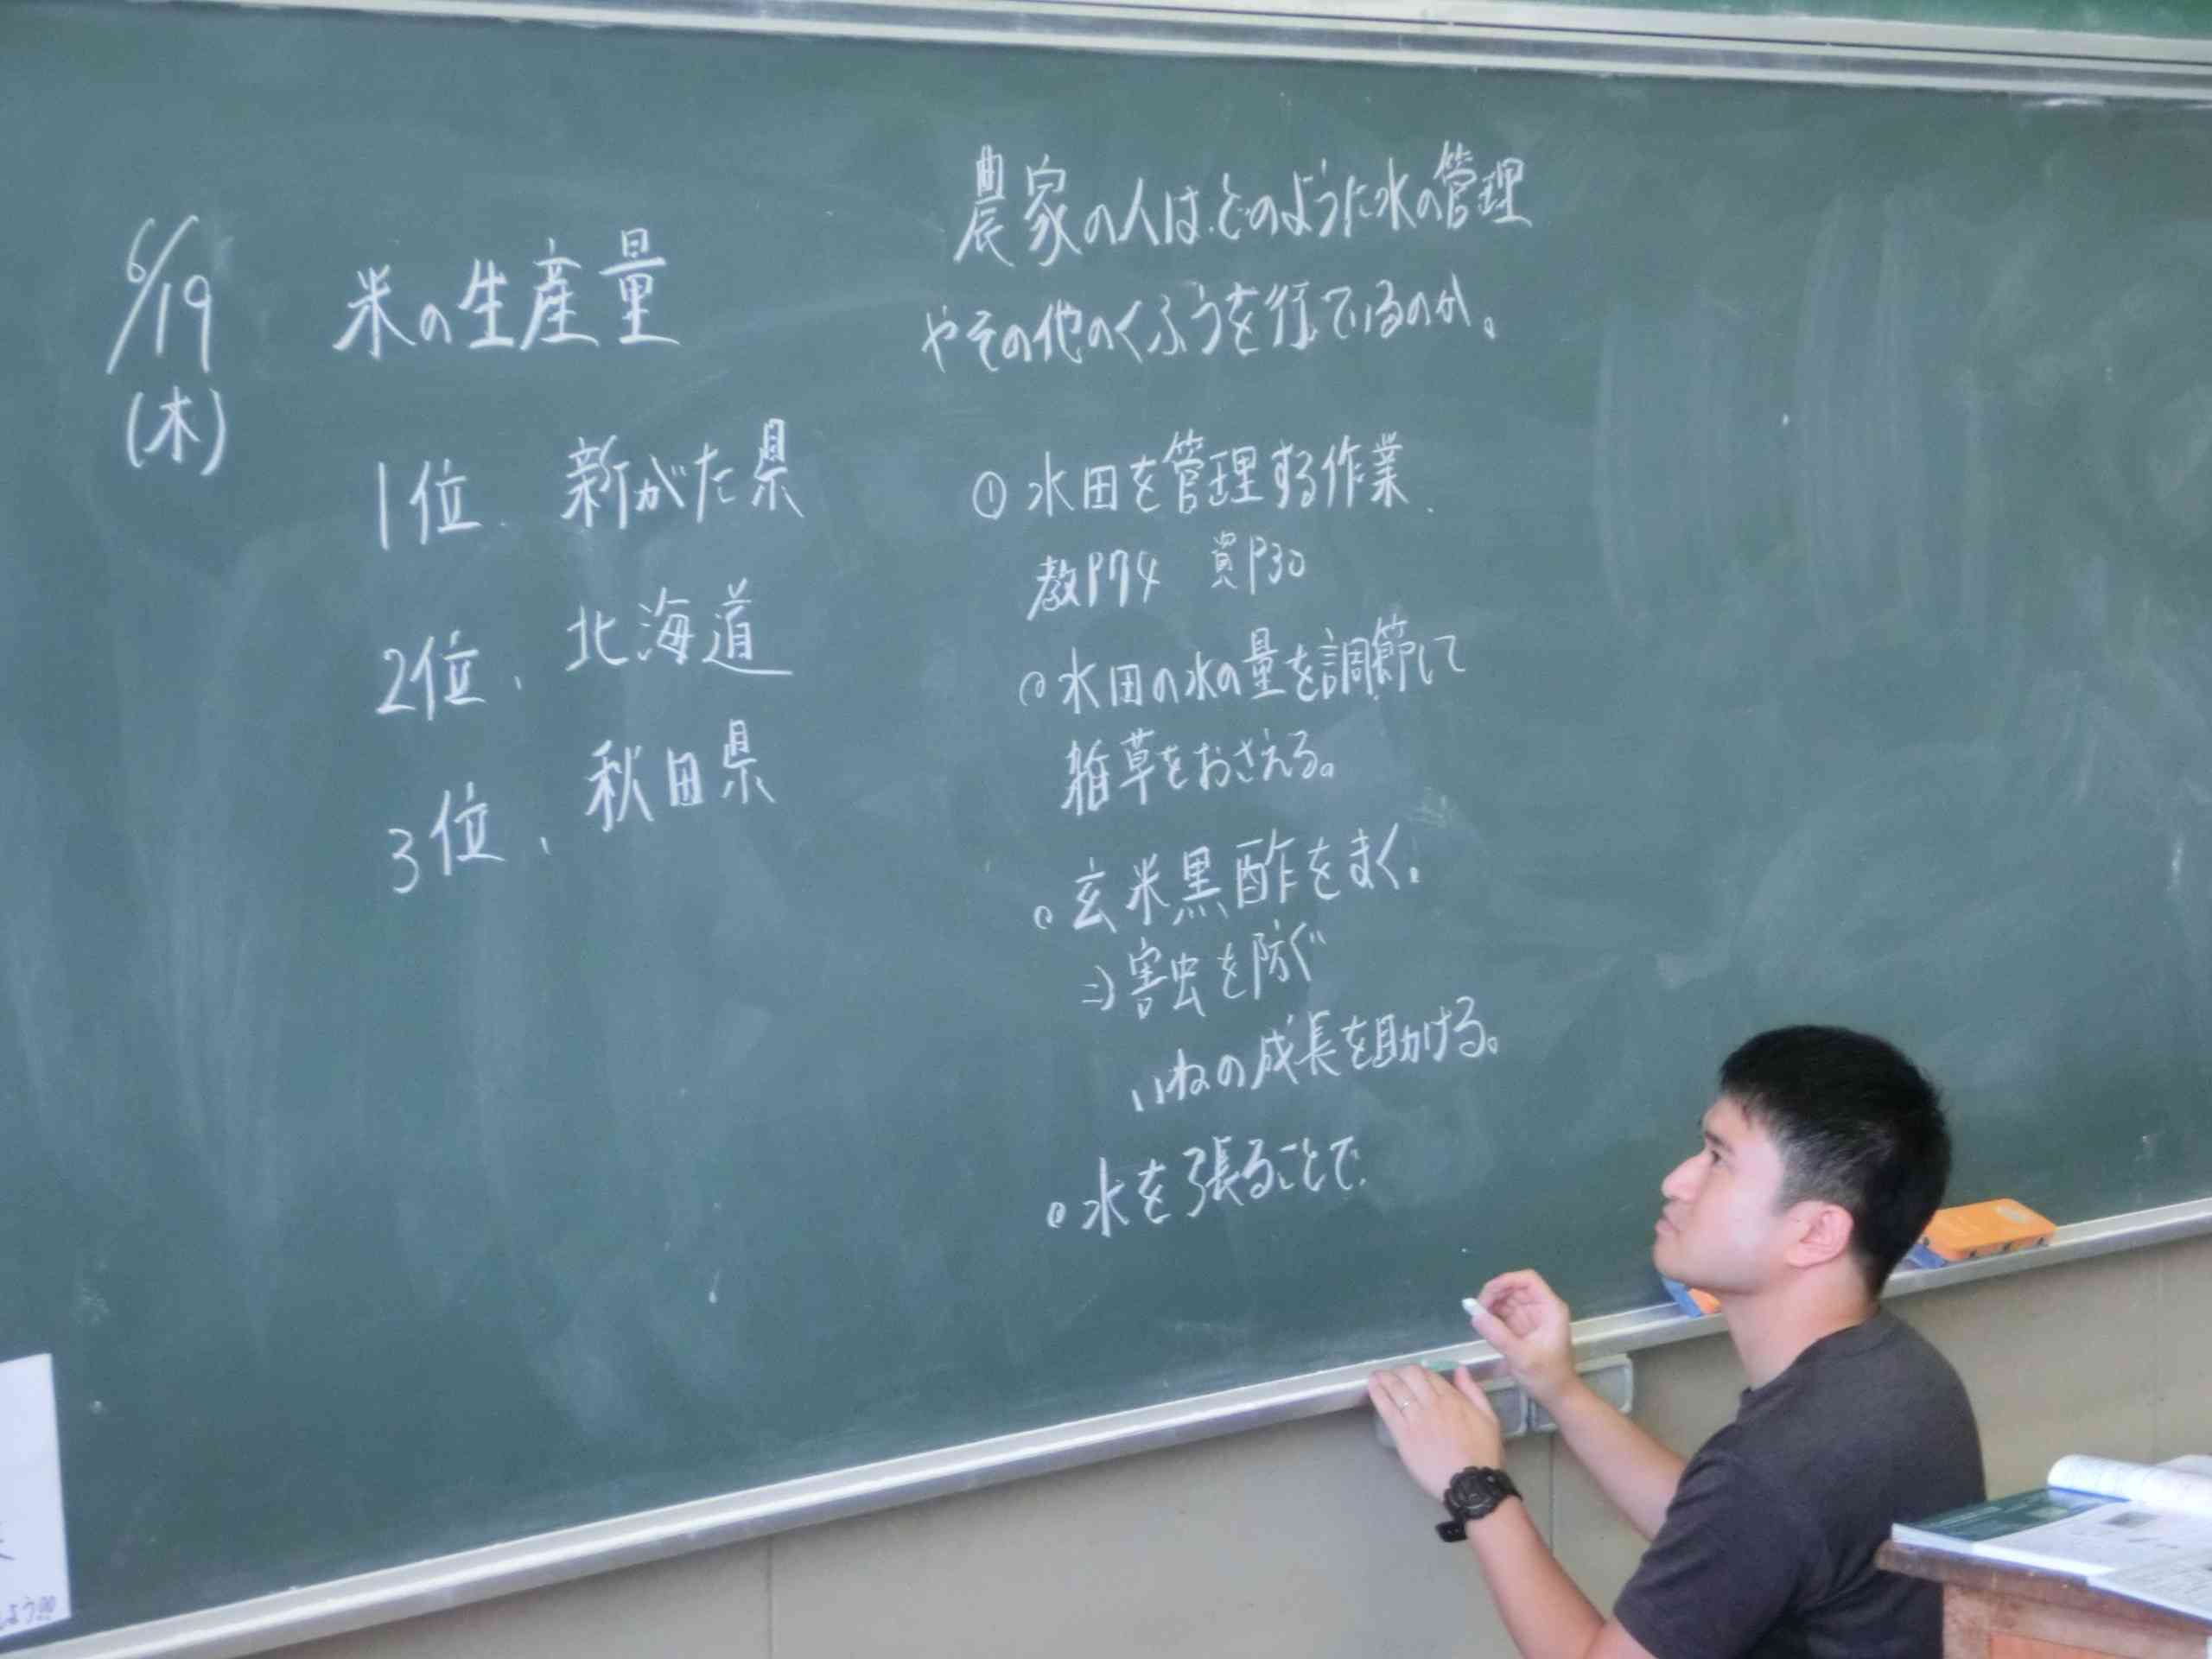 6/19
(木)
米の生産量
1位、新がた県
2位、北海道
3位、秋田県
農家の人は、どのような水の管理
やその他のくふうを行っているのか。
① 水田を管理する作業
教P74 資P30
○水田の水の量を調節して
雑草をおさえる。
○玄米黒酢をまく。
⇒害虫を防ぐ
いねの成長を助ける。
○水を張ることで、